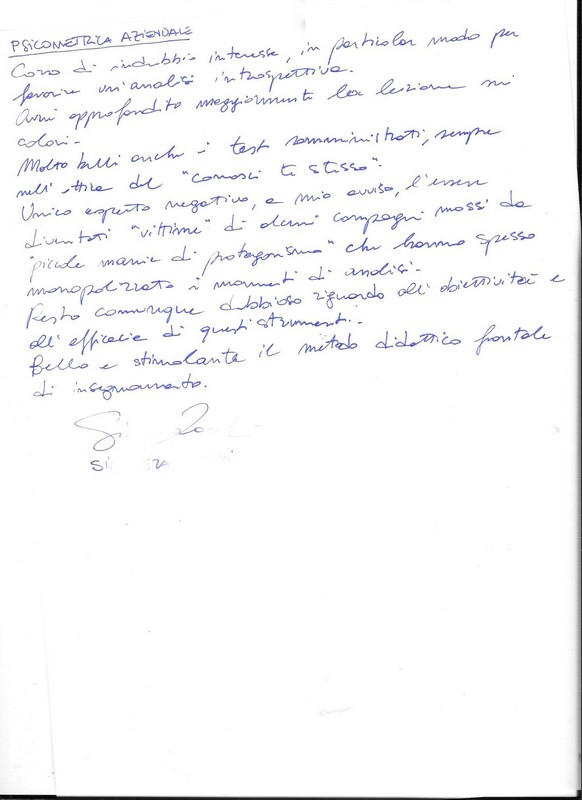 PSICOMETRICA AZIENDALE
Corso di indubbio interesse, in particolar modo per
favorire un'analisi introspettiva.
Avrei approfondito maggiormente la lezione sui
colori.
Molto belli anche i test somministrati, sempre
nell'ottica del "conosci te stesso".
Unico aspetto negativo, a mio avviso, l'essere
diventati "vittime" di alcuni compagni mossi da
"piccole manie di protagonismo" che hanno spesso
monopolizzato i momenti di analisi.
Resto comunque dubbioso riguardo all'obiettività e
all'efficacia di questi strumenti.
Bello e stimolante il metodo didattico frontale
di insegnamento.